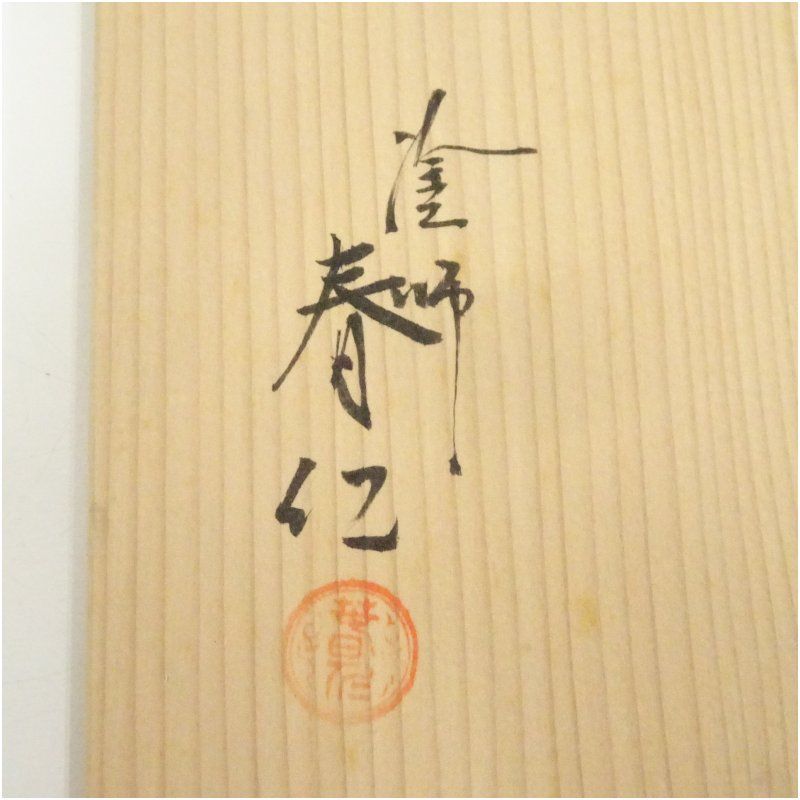 塗師
春仁